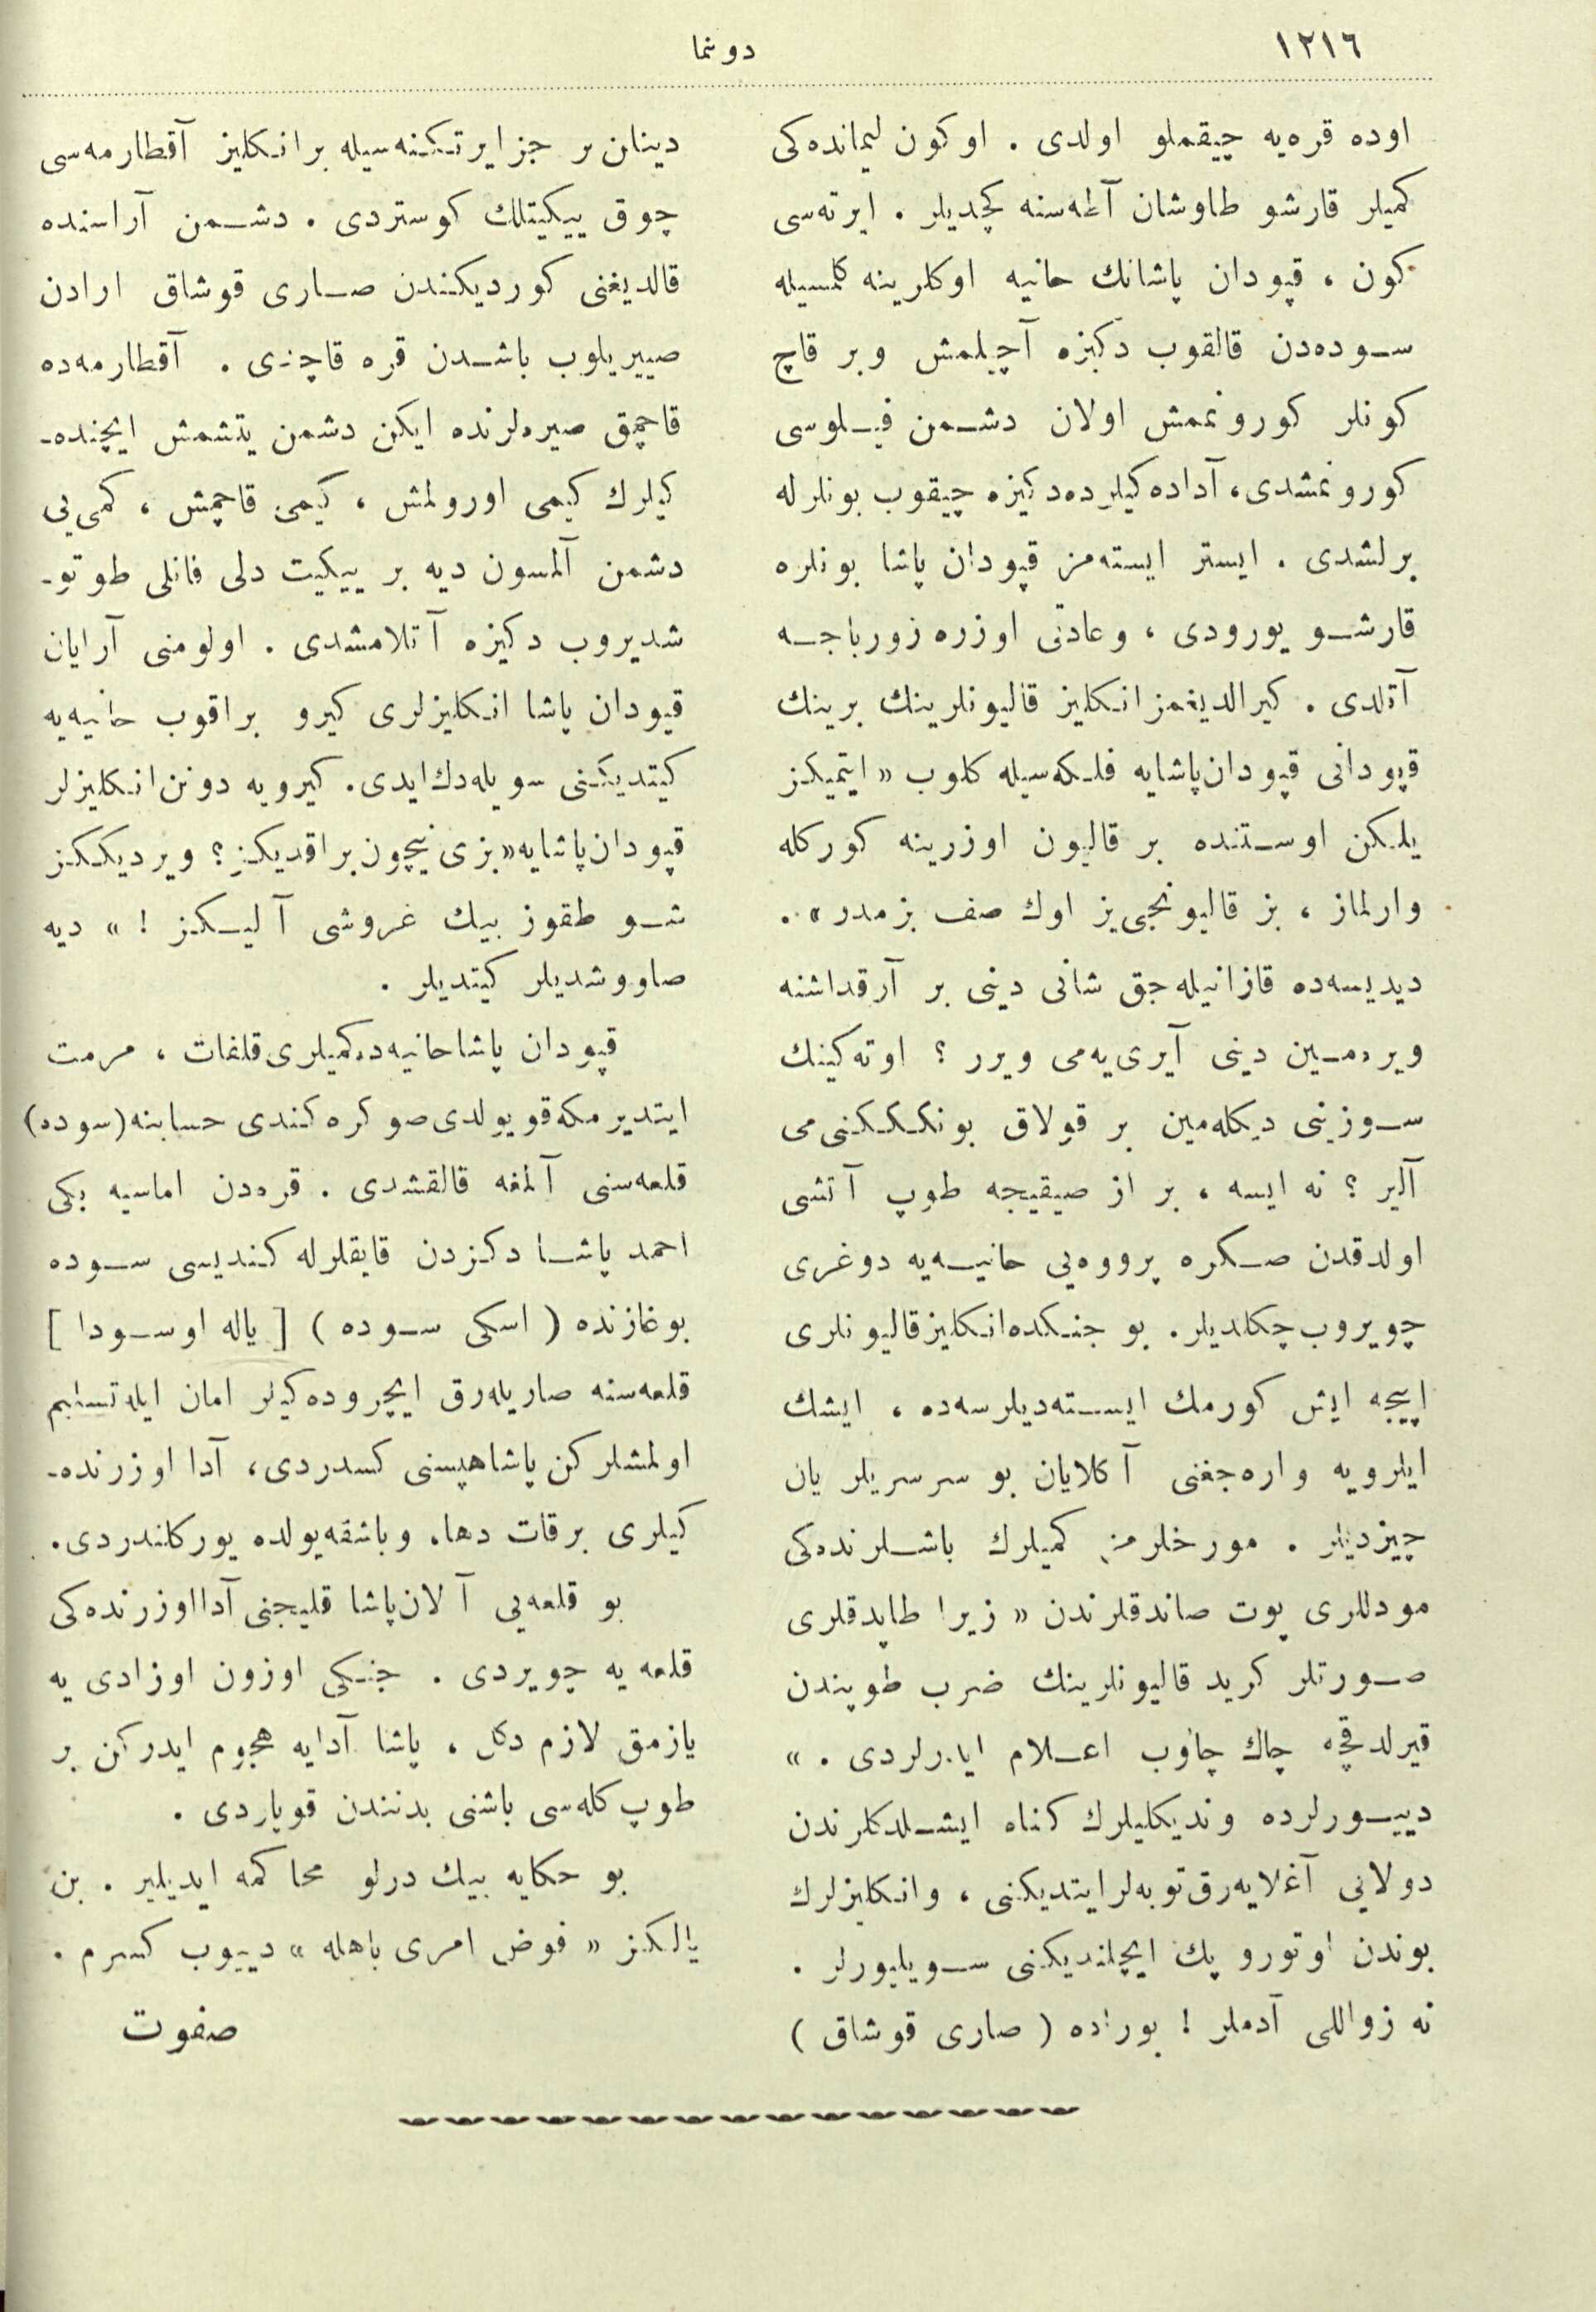 ١٢١٦
دوننما
اوده قره‌یه چیقملو اولدی . اوکون لیمانده‌کی
کمیلر قارشو طاوشان آطه‌سنه کچدیلر . ایرته‌سی
کون ، قپودان پاشانك حانیه اوکلرینه کلمسیله
سوده‌دن قالقوب دکیزه آچیلمش وبر قاچ
کونلر کورونممش اولان دشمن فیلوسی
کورونمشدی، آداده‌کیلرده‌دکیزه چیقوب بونلرله
برلشدی . ایستر ایسته‌مز قپودان پاشا بونلره
قارشو یورودی ، وعادتی اوزره زورباجه
آتلدی . کیرالدیغمز انکلیز قالیونلرینك برینك
قپودانی قپودان‌پاشایه فلکه‌سیله کلوب « ایتمیکز
یلکن اوستنده بر قالیون اوزرینه کورکله
وارلماز ، بز قالیونجی‌یز اوك صف بزمدر » .
دیدیسه‌ده قازانیله‌جق شانی دینی بر آرقداشنه
ویره‌مین دینی آیری‌یه‌می ویرر ؟ اوته‌کینك
سوزینی دیکله‌مین بر قولاق بونکککنی‌می
آلیر ؟ نه ایسه ، بر از صیقیجه طوپ آتشی
اولدقدن صکره پرووه‌یی حانیه‌یه دوغری
چویروب چکلدیلر. بو جنکده‌انکلیزقالیونلری
اییجه ایش کورمك ایسته‌دیلرسه‌ده ، ایشك
ایلرویه واره‌جغنی آکلایان بو سرسریلر یان
چیزدیلر . مورخلرمز کمیلرك باشلرنده‌کی
مودللری پوت صاندقلرندن « زیرا طاپدقلری
صورتلر کرید قالیونلرینك ضرب طوپندن
قیرلدقچه چاك چاوب اعلام ایدرلردی . »
دییورلرده وندیکلیلرك کناه ایشلدکلرندن
دولایی آغلایه‌رق‌توبه‌لرایتدیکنی ، وانکلیزلرك
بوندن اوتورو پك ایچلندیکنی سویلیورلر .
نه زواللی آدملر ! بوراده ( صاری قوشاق )
دینان بر جزایر تکنه‌سیله برانکلیز آقطارمه‌سی
چوق ییکیتلك کوستردی . دشمن آراسنده
قالدیغنی کوردیکندن صاری قوشاق ارادن
صییریلوب باشدن قره قاچدی . آقطارمه‌ده
قاچمق صیره‌لرنده ایکن دشمن یتشمش ایچنده‌ـ
کیلرك کیمی اورولمش ، کیمی قاچمش ، کمی‌یی
دشمن آلمسون دیه بر ییکیت دلی قانلی طوتوـ
شدیروب دکیزه آتلامشدی . اولومنی آرایان
قپودان پاشا انکلیزلری کیرو براقوب حانیه‌یه
کیتدیکنی سویله‌دك‌ایدی. کیرویه دونن‌انکلیزلر
قپودان‌پاشایه«بزی نیچون‌براقدیکز؟ ویردیککز
شو طقوز بیك غروشی آلیکز ! » دیه
صاووشدیلر کیتدیلر .
قپودان پاشاحانیه‌ده‌کمیلری‌قلفات ، مرمت
ایتدیرمکه‌قویولدی‌صوکره‌کندی حسابنه(سوده)
قلعه‌سنی آلمغه قالقشدی . قره‌دن اماسیه بکی
احمد پاشا دکزدن قایقلرله کندیسی سوده
بوغازنده ( اسکی سوده ) [ پاله اوسودا ]
قلعه‌سنه صاریله‌رق ایچروده‌کیلر امان ایله‌تسلیم
اولمشلرکن پاشاهپسنی کسدردی، آدا اوزرنده‌ـ
کیلری برقات دها، وباشقه‌یولده یورکلندردی.
بو قلعه‌یی آلان‌پاشا قلیجنی آدااوزرنده‌کی
قلعه‌یه چویردی . جنکی اوزون اوزادی یه
یازمق لازم دکل ، پاشا آدایه هجوم ایدرکن بر
طوپ کله‌سی باشنی بدنندن قوپاردی .
بو حکایه بیك درلو محاکمه ایدیلیر . بن
یالکز « فوض امری باهله » دییوب کسرم .
صفوت